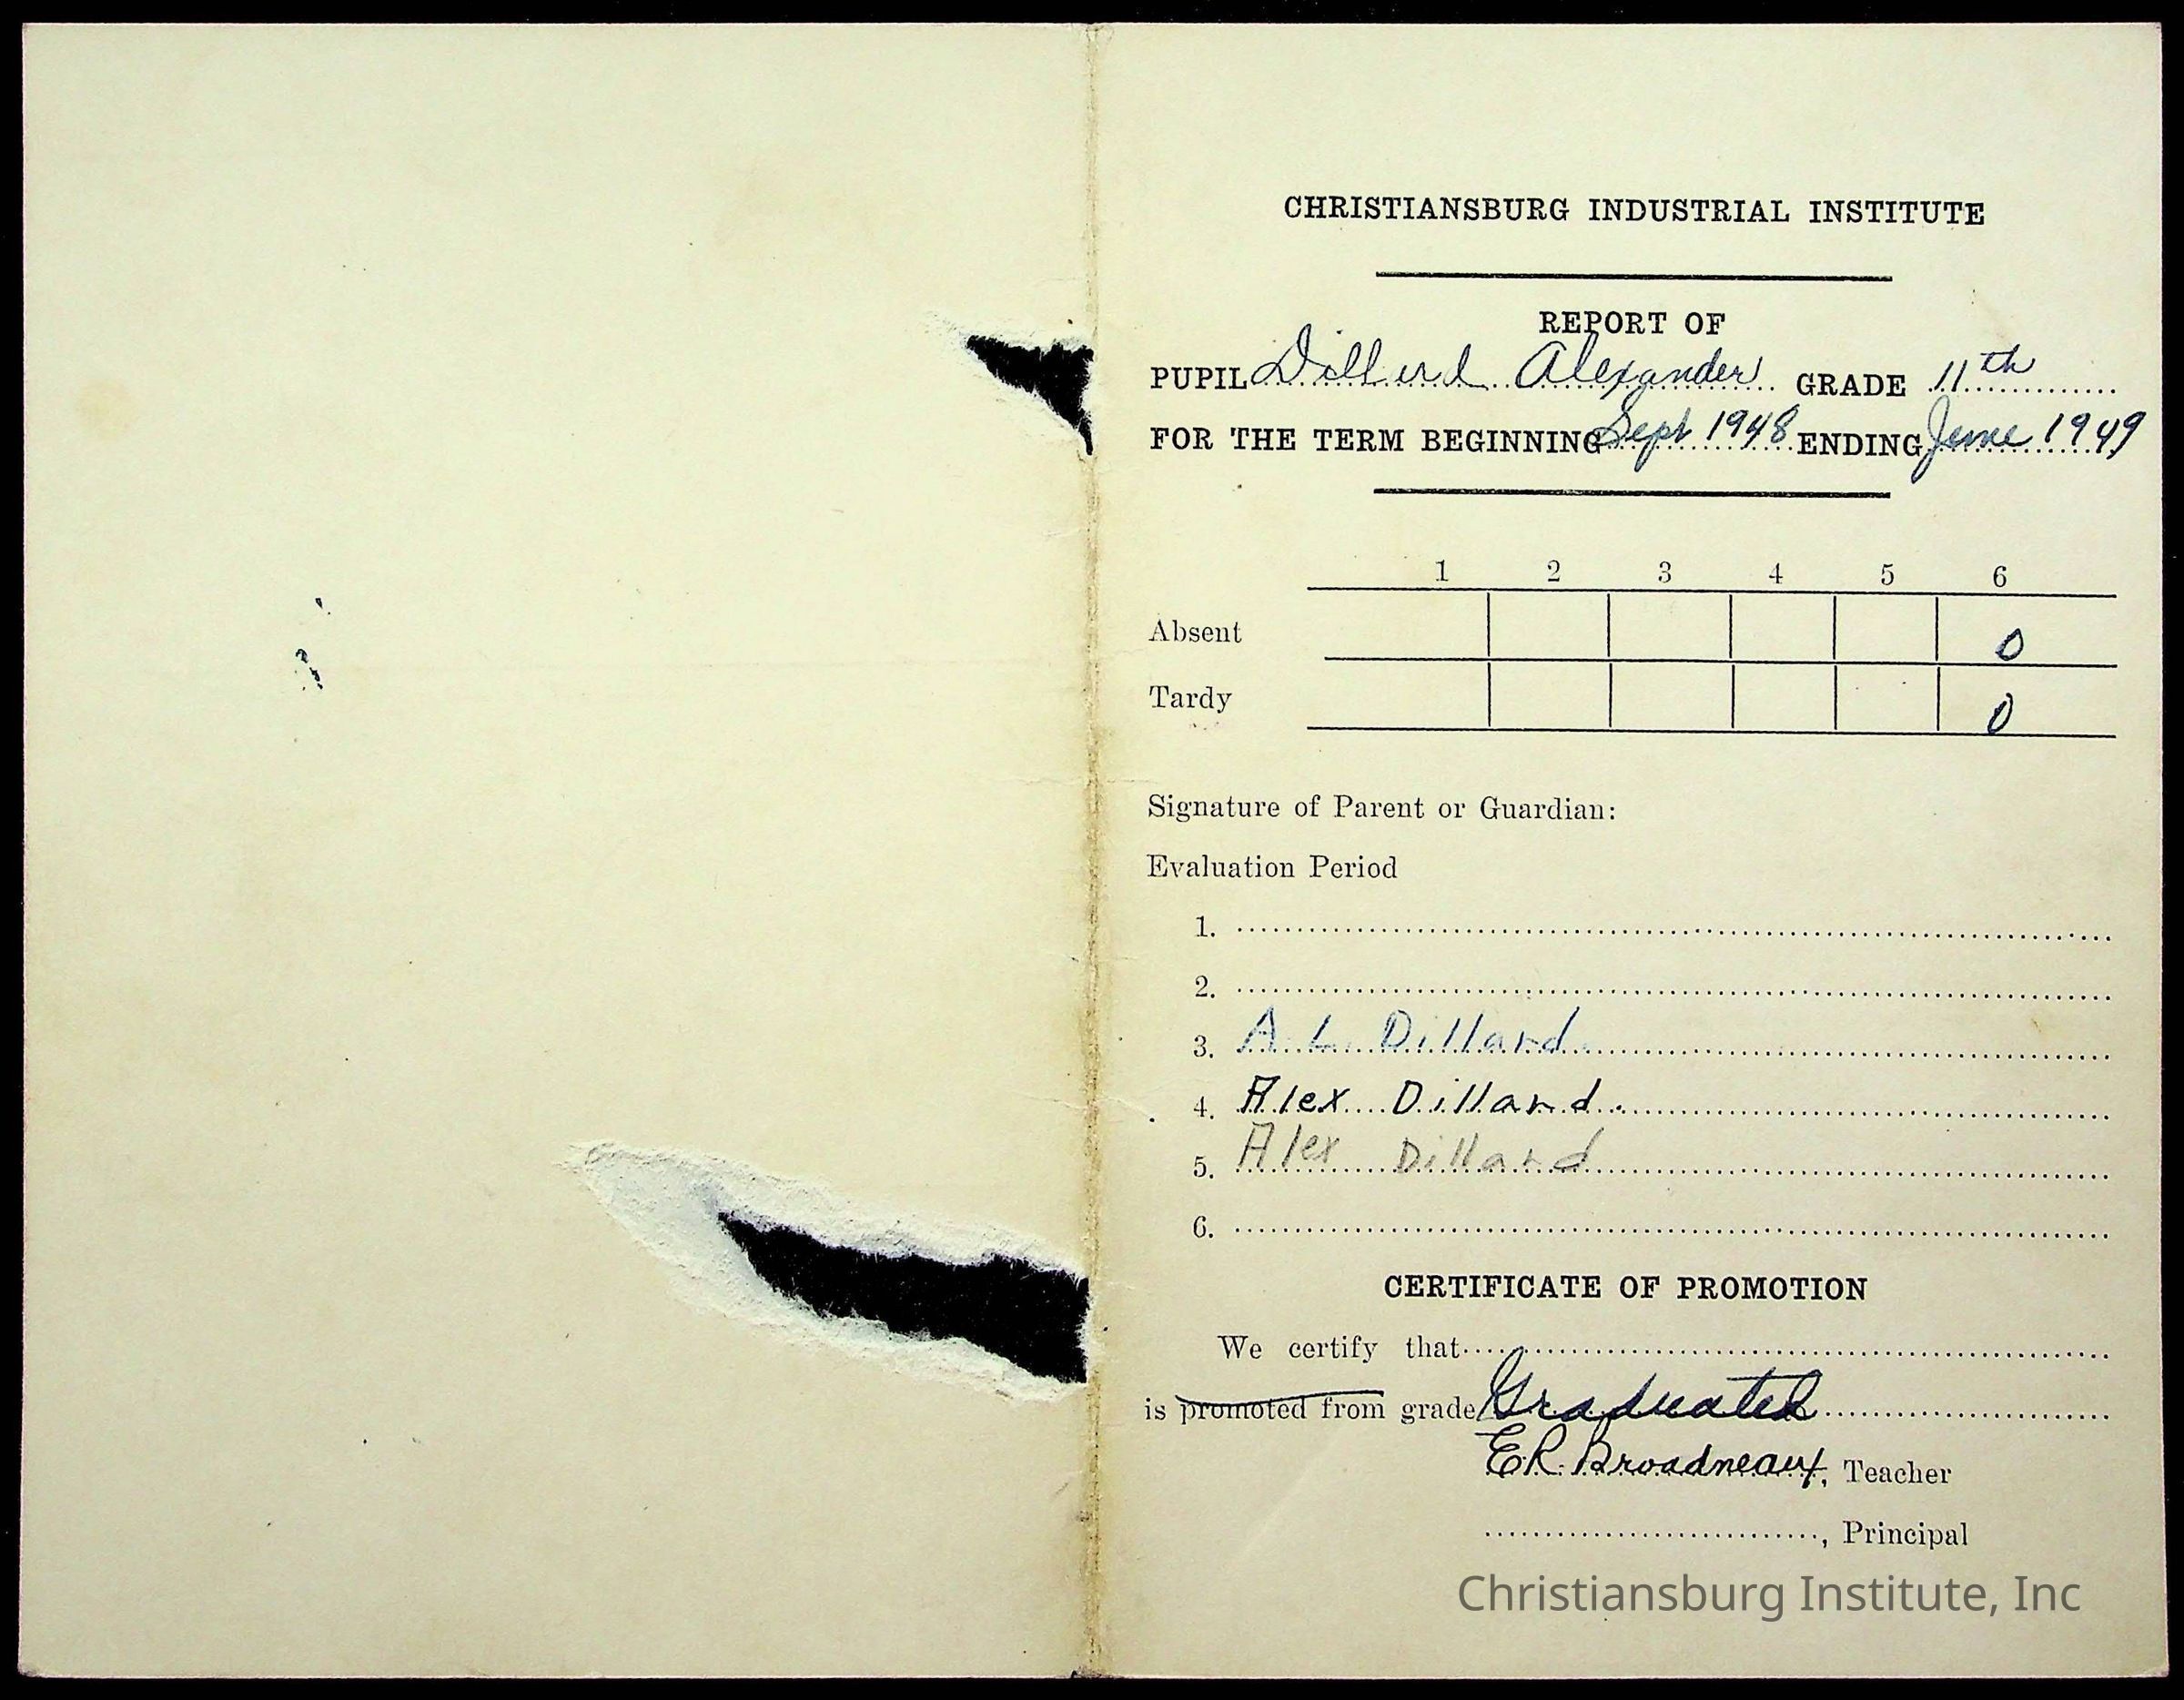 CHRISTIANSBURG INDUSTRIAL INSTITUTE
REPORT OF
PUPIL Dillard Alexander GRADE 11th
FOR THE TERM BEGINNING Sept 1948 ENDING June 1949
1 2 3 4 5 6
Absent 0
Tardy 0
Signature of Parent or Guardian:
Evaluation Period
1.
2.
3. A. L. Dillard
4. Alex Dillard
5. Alex Dillard
6.
CERTIFICATE OF PROMOTION
We certify that
is promoted from grade Graduated
E.R. Broadneaux, Teacher
, Principal
Christiansburg Institute, Inc